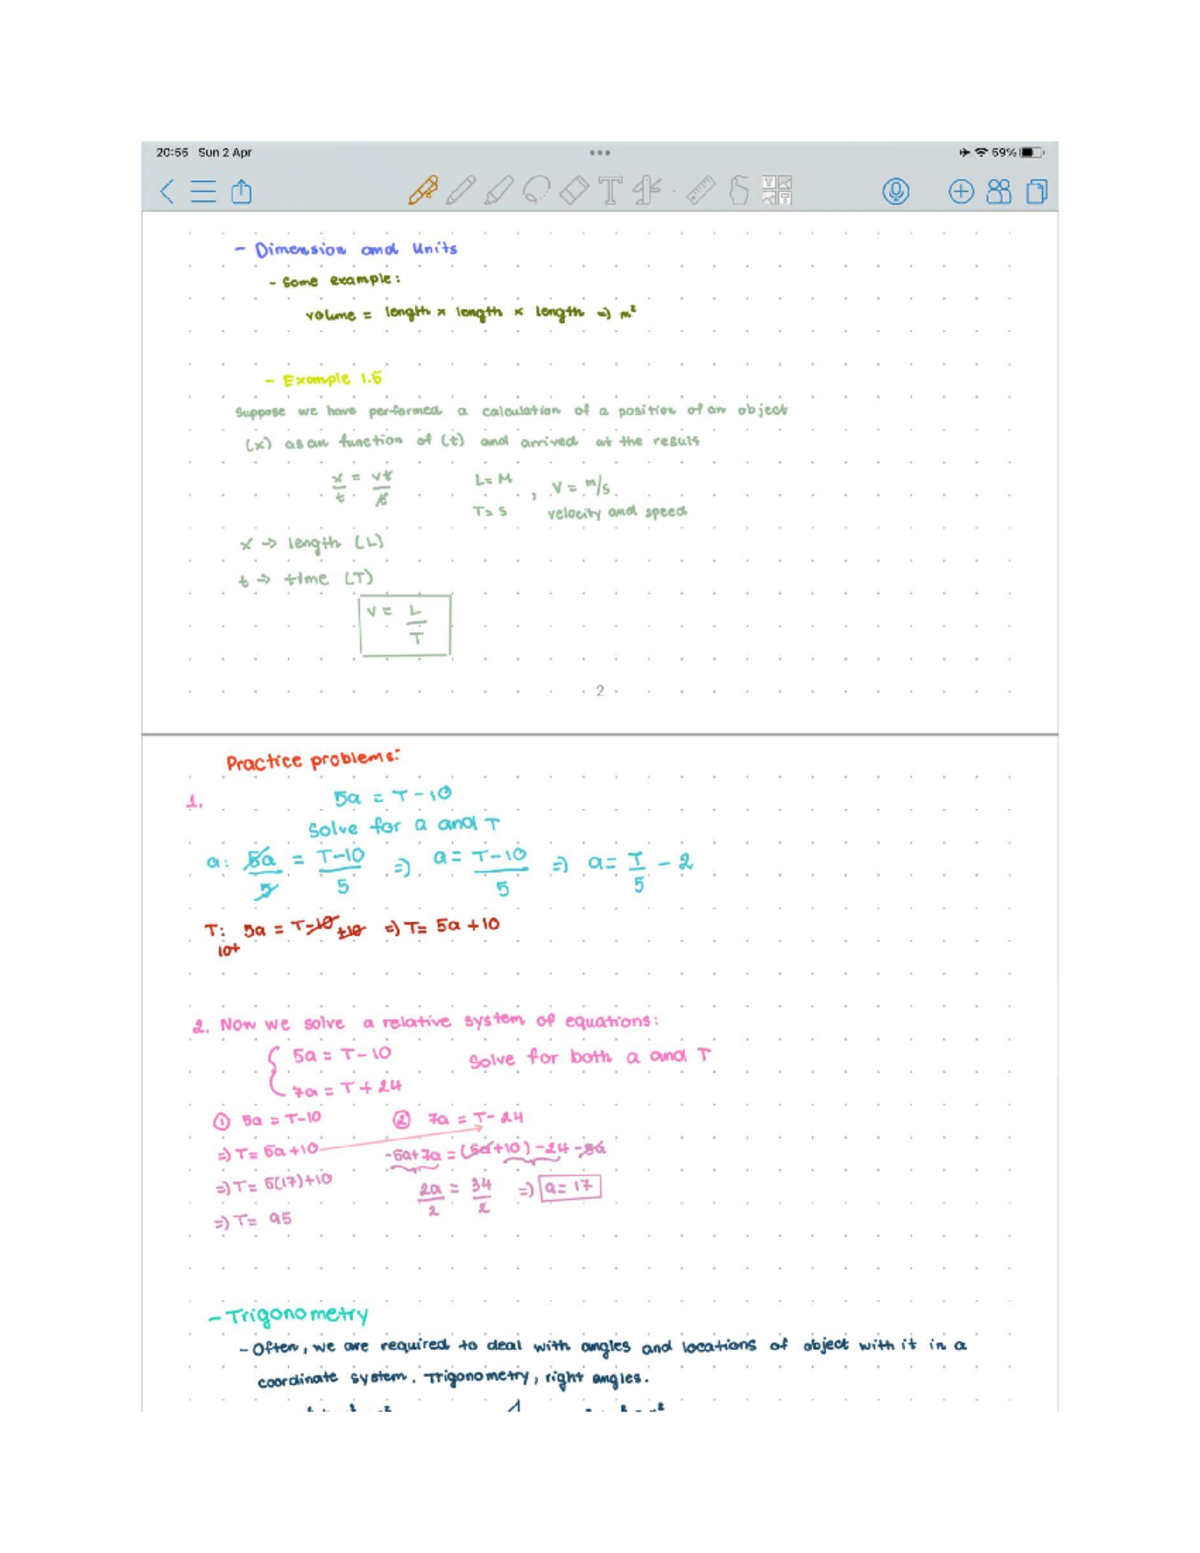 20:55 Sun 2 Apr
59%
- Dimension and Units
- Some example:
volume = length × length × length => m²
- Example 1.5
Suppose we have performed a calculation of a position of an object
(x) as an function of (t) and arrived at the result
x/t = vt/t
L = M , V = m/s
T = s velocity and speed
x → length (L)
t → time (T)
V = L/T
2
Practice problems:
1. 5a = T - 10
Solve for a and T
a: 5a/5 = T-10/5 => a = T-10/5 => a = T/5 - 2
T: 5a = T-10 +10 => T = 5a + 10
10+
2. Now we solve a relative system of equations:
{ 5a = T - 10
Solve for both a and T
7a = T + 24
① 5a = T-10 ② 7a = T - 24
=> T = 5a + 10 -5a+7a = (5a+10) - 24 - 5a
=> T = 5(17)+10 2a/2 = 34/2 => a = 17
=> T = 95
- Trigonometry
- Often, we are required to deal with angles and locations of object with it in a
coordinate system. Trigonometry, right angles.